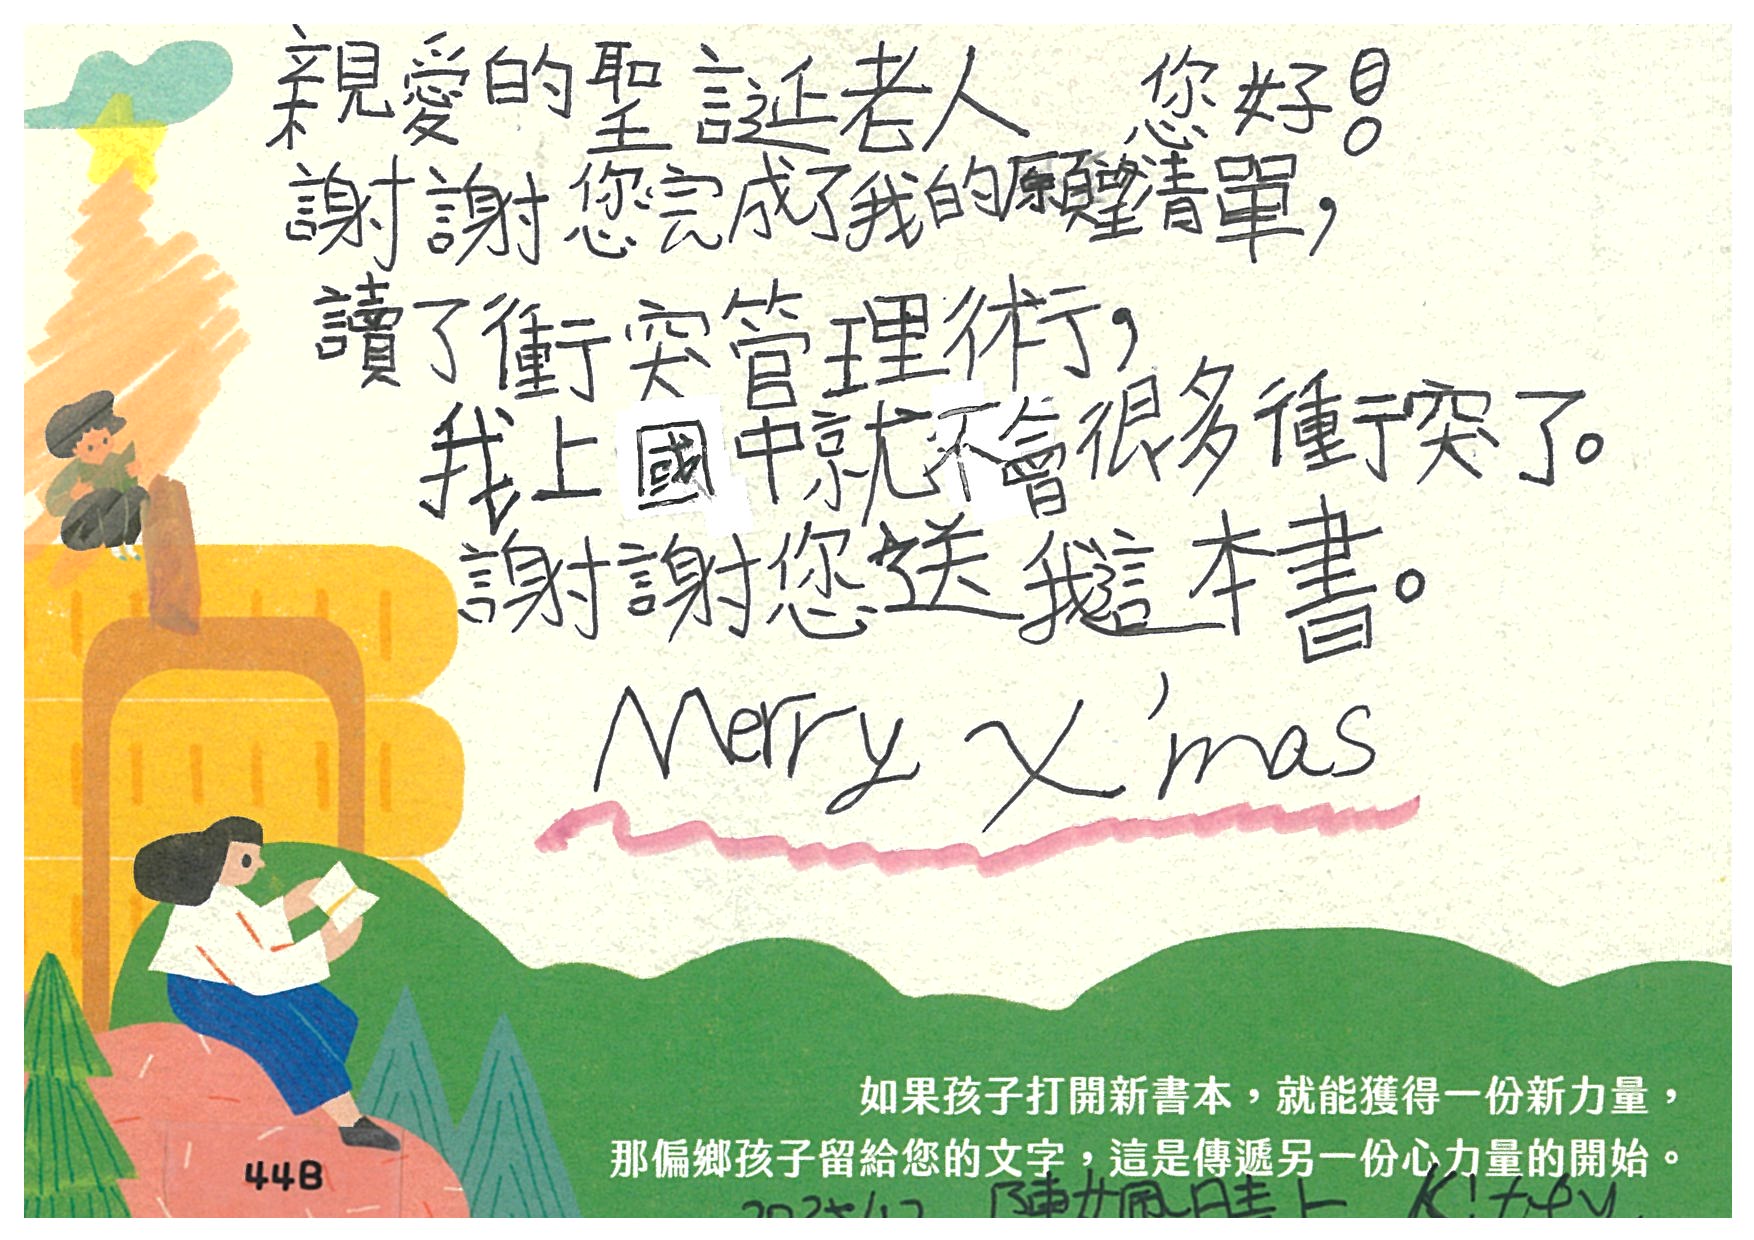 親愛的聖誕老人 您好！
謝謝您完成了我的願望清單，
讀了衝突管理術，
我上國中就不會很多衝突了。
謝謝您送我這本書。
Merry X'mas
如果孩子打開新書本，就能獲得一份新力量，
那偏鄉孩子留給您的文字，這是傳遞另一份心力量的開始。
44B
陳 晴上 Kitty